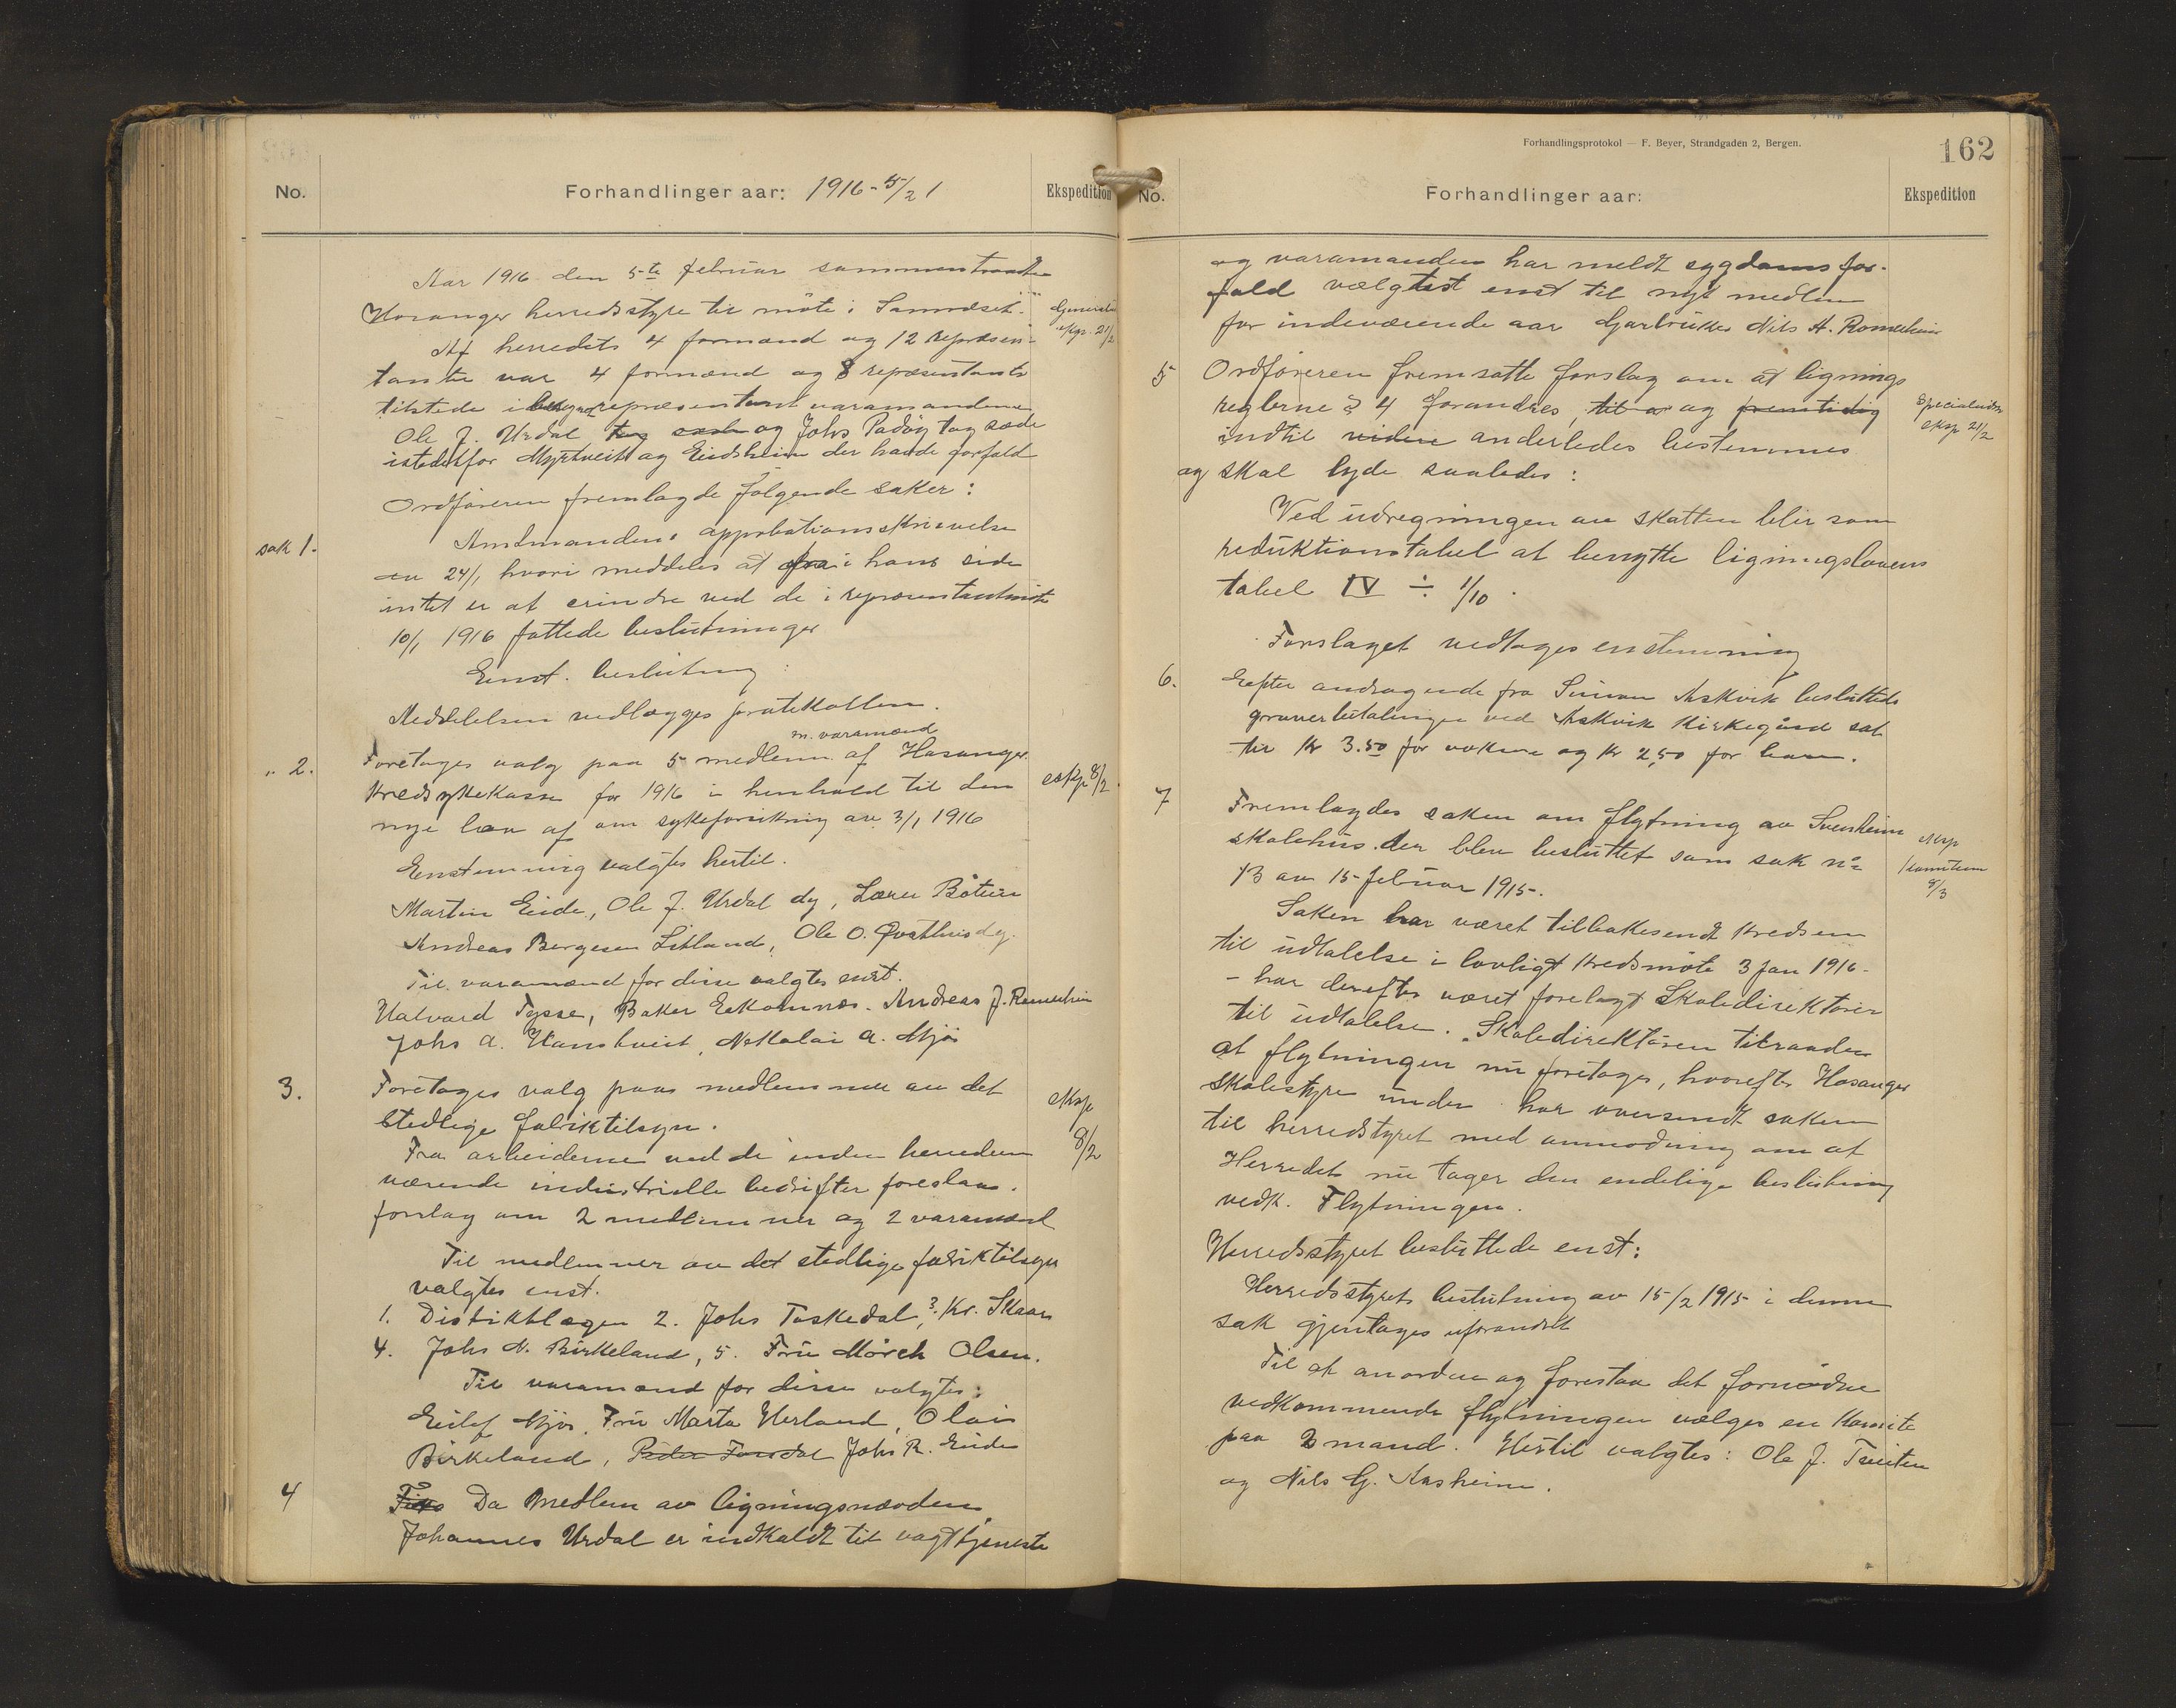 No.
Forhandlinger aar: 1916 - 5/2 1
Ekspedition
Aar 1916 den 5te februar sammentraadte
Hosanger herredsstyre til möte i
Af herredets 4 formænd og 12 repræsen-
tanter var 4 formænd og 8 repæsentanter
tilstede varamændene
Ole J. Urdal og Johs Padöy tog sæde
istedetfor Myrtveit og Eidsheim der havde forfald
Ordföreren fremlagde fölgende saker:
sak 1.
Amtmandens approbationsskrivelse
av 24/1 hvori meddeles at fra hans side
intet er at erindre ved de i repræsentantmöte
10/1 1916 fattede beslutninger
Enst. beslutning:
Meddelelsen vedlægges protokollen.
" 2.
m. varamænd
Foretages valg paa 5 medlem. af Hosanger
kredsykekasse for 1916 i henhold til den
eksp 8/2
nye lov af om sykeforsikring av 3/1 1916
Enstemmig valgtes hertil.
Martin Eide, Ole J. Urdal dy,
Andreas Bergesen Litland, Ole O. Östhus dy.
Til varamænd for disse valgtes enst.
Halvard Tysse, Baker Eekomnæs. Andreas J. Romarheim
Johs A. Hanstveit, Nikolai A. Mjös
3.
Foretages valg paa medlemmer av det
stedlige fabriktilsyn.
eksp
8/2
Fra arbeiderne ved de inden herredern
værende industrielle bedrifter
forslag om 2 medlemmer og 2 varamænd
Til medlemmer av det stedlige fabriktilsyn
valgtes enst.
1. Distriktlægen 2. Johs Toskedal, 3. Kr. Skaar
4. Johs N. Birkeland, 5. Fru Mörch Olsen.
Til varamænd for disse valgtes:
Eilef Mjös, Fru Marta Herland, Olai
Birkeland, Peder Fossdal Johs R. Eide
4
Da Medlem av ligningsnævden
Johannes Urdal er indkaldt til vagttjeneste
Forhandlingsprotokol — F. Beyer, Strandgaden 2, Bergen.
162
No.
Forhandlinger aar:
Ekspedition
og varamanden har meldt sygdoms for-
fald vælgtest enst til nyt medlem
for indeværende aar Gardbruker Nils A. Romarheim
5
Ordföreren fremsatte forslag om at lignings
reglerne § 4 forandres, til a og fremtidig
Specialudsk
eksp 21/2
indtil videre anderledes bestemmes
og skal lyde saaledes:
Ved udregningen av skatten blir som
reduktionstabel at benytte ligningslovens
tabel IV ÷ 1/10.
Forslaget vedtages enstemmig
6.
Eefter andragende fra Simon Askvik besluttedes
graverbetalingen ved Askvik kirkegård sat
til Kr 3.50 for voksne og kr 2,50 for barn.
7
Fremlagdes saken om flytning av Svenheim
skolehus. der blev besluttet som sak no
13 av 15 februar 1915.
eksp
8/3
Saken har været tilbakesendt kredsen
til udtalelse i lovligt kredsmöte 3 jan 1916.
- har derefter været forelagt Skoledirektören
til udtalelse. Skoledirektören tilraader
at flytningen nu foretages, hvorefter Hosanger
skolestyre under har oversendt saken
til herredstyret med anmodning om at
Herredet nu tager den endelige beslutning
vedk. Flytningen.
Herredsstyret besluttede enst:
Herredsstyrets beslutning av 15/2 1915 i denne
sak gjentages uforandret
Til at anordne og forestaa det fornödne
vedkommende flytningen vælges en komite
paa 2 mand. Hertil valgtes: Ole J. Tveiten
og Nils G. Aasheim.